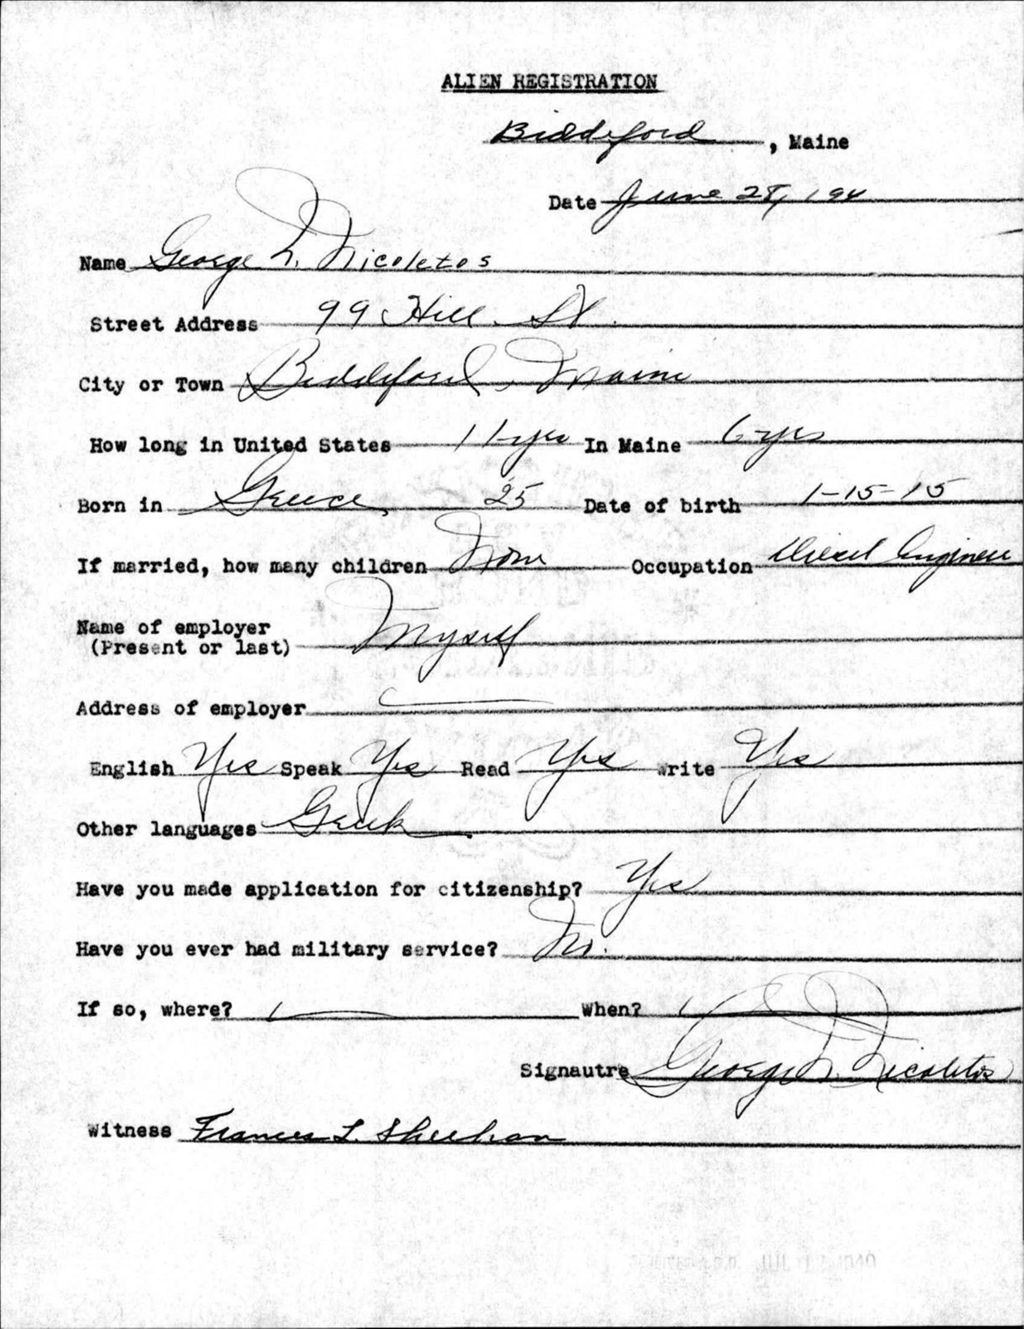 ALIEN REGISTRATION
Biddeford, Maine
Date June 28, 194
Name George N. Nicoletos
Street Address 99 Hill St.
City or Town Biddeford, Maine
How long in United States 11 yrs In Maine 6 yrs
Born in Greece, 25 Date of birth 1-15-15
If married, how many children None Occupation Diesel Engineer
Name of employer
(Present or last) Myself
Address of employer
English Yes Speak Yes Read Yes Write Yes
Other languages Greek
Have you made application for citizenship? Yes
Have you ever had military service? No.
If so, where? When?
Signautre George N. Nicoletos
Witness Frances L. Sheehan